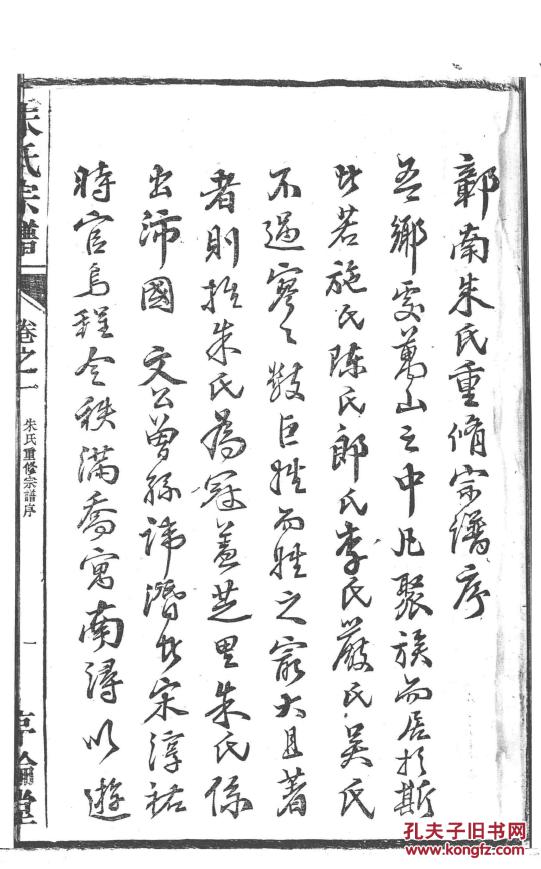 鄣南朱氏重脩宗譜序
吾鄉處萬山之中凡聚族而居於斯
者若施氏陳氏郎氏李氏嚴氏吳氏
不過寥〻數巨姓而姓之最大且著
者則推朱氏為冠蓋芝里朱氏係
出沛國 文公曾孫諱潛者宋淳祐
時官烏程令秩滿喬寓南潯以遊
朱氏宗譜
卷之一
朱氏重修宗譜序
一
倫堂
孔夫子旧书网
www.kongfz.com